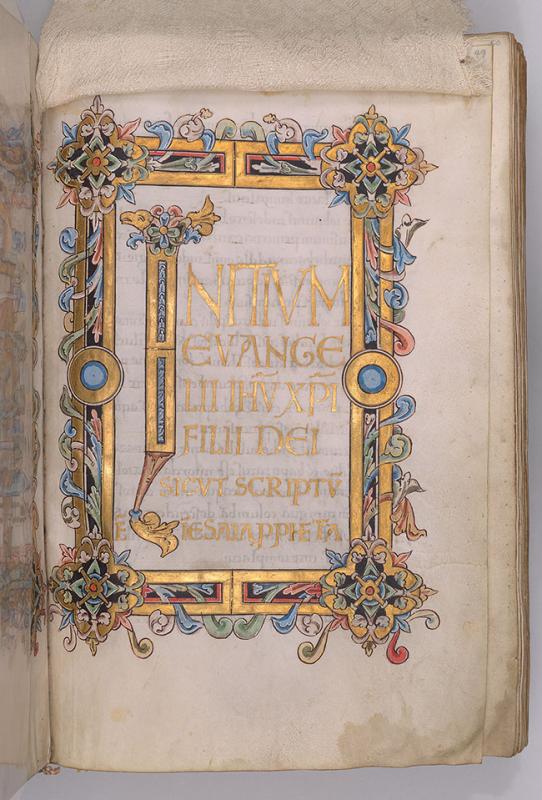 INITIVM
EVANGE
LII IHV̅ XP̅I
FILII DEI
SICVT SCRIPTV̅
E IESAIA PPHETA